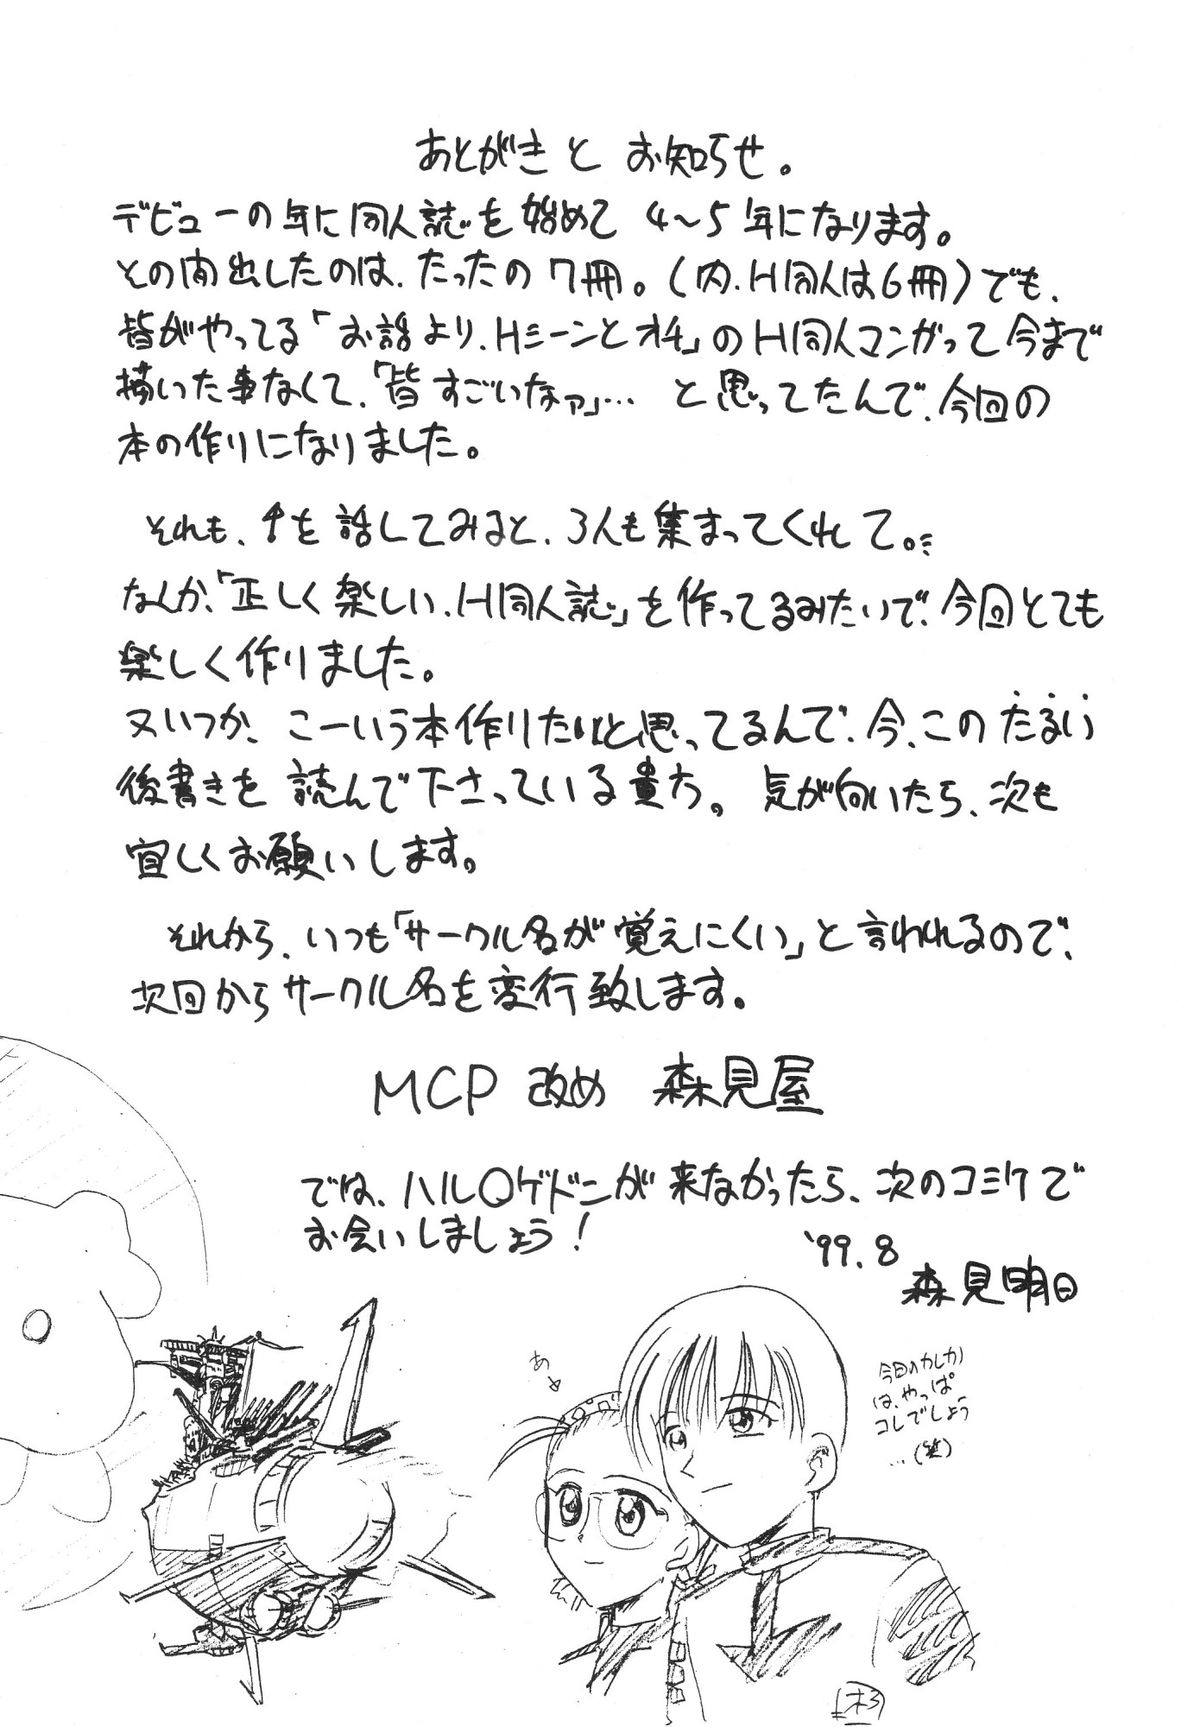 あとがきと お知らせ。
デビューの年に同人誌を始めて 4〜5年になります。
その間出したのは、たったの7冊。(内、H同人は6冊)でも、
皆がやってる「お話より、Hシーンとオチ」のH同人マンガって今まで
描いた事なくて、「皆すごいなァ」… と思ってたんで、今回の
本の作りになりました。
それも、↑を話してみると、3人も集まってくれて。…
なんか、「正しく楽しい、H同人誌」を作ってるみたいで、今回とても
楽しく作りました。
又いつか、こーいう本作りたいと思ってるんで、今、このたるい
後書きを読んで下さっている貴方。気が向いたら、次も
宜しくお願いします。
それから、いつも「サークル名が覚えにくい」と言われるので、
次回からサークル名を変行致します。
MCP 改め 森見屋
では、ハル○ゲドンが来なかったら、次のコミケで
お会いしましょう!
'99.8
森見明日
あ
今回のカシカ
は、やっぱ
コレでしょう
…(笑)